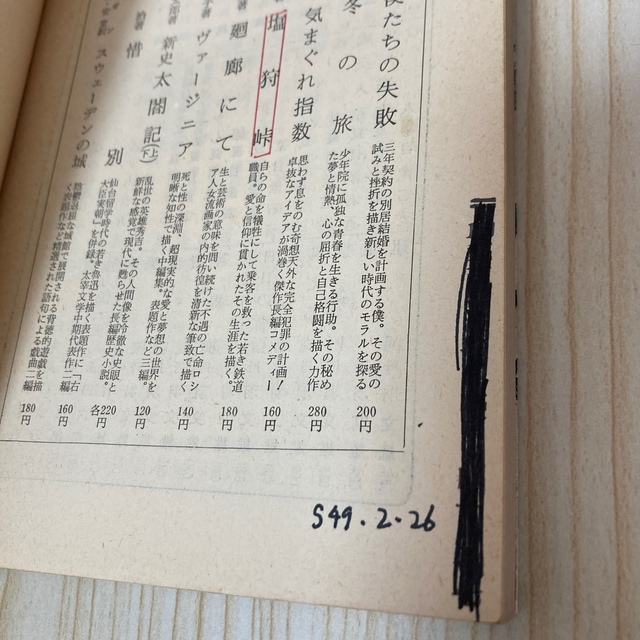 僕たちの失敗
三年契約の別居結婚を計画する僕。その愛の
試みと挫折を描き新しい時代のモラルを探る
200円
冬の旅
少年院に孤独な青春を生きる行助。その秘め
た夢と情熱、心の屈折と自己格闘を描く力作
280円
気まぐれ指数
思わず息をのむ奇想天外な完全犯罪の計画！
卓抜なアイデアが渦巻く傑作長編コメディー
160円
塩狩峠
自らの命を犠牲にして乗客を救った若き鉄道
職員。愛と信仰に貫かれたその生涯を描く。
180円
廻廊にて
生と芸術の意味を問い続けた不遇の亡命ロシ
ア人女流画家の内的彷徨を清新な筆致で描く
140円
ヴァージニア
死と性の深淵、超現実的な愛と夢想の世界を
明晰な知性で描く中編集。表題作など三編。
120円
新史太閤記(上下)
乱世の英雄秀吉。その人間像を冷徹な史眼と
新鮮な感覚で現代に甦らせた長編歴史小説。
各220円
惜別
仙台留学時代の若き魯迅を描く表題作に「右
大臣実朝」を併録。太宰文学中期代表作二編
160円
スウェーデンの城
に展開される背徳的遊戯を描
く表題作など精選された語句による戯曲二編
180円
S49.2.26